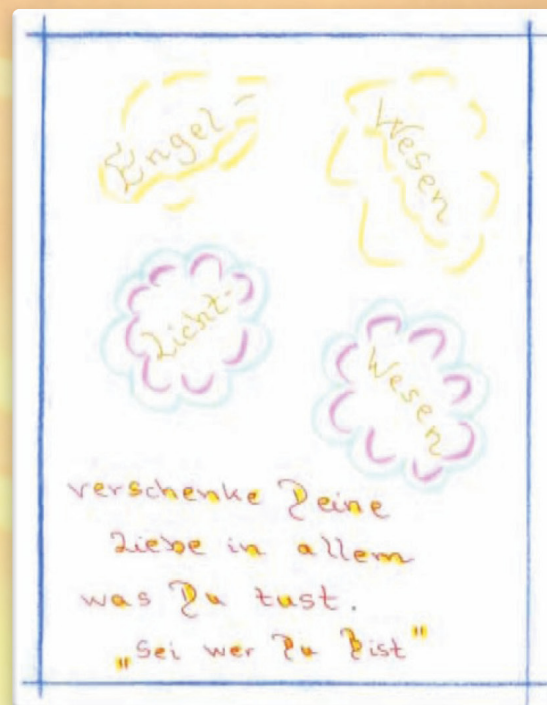 Engel-
Wesen
Licht-
Wesen
verschenke Deine
Liebe in allem
was Du tust.
"Sei wer Du Bist"